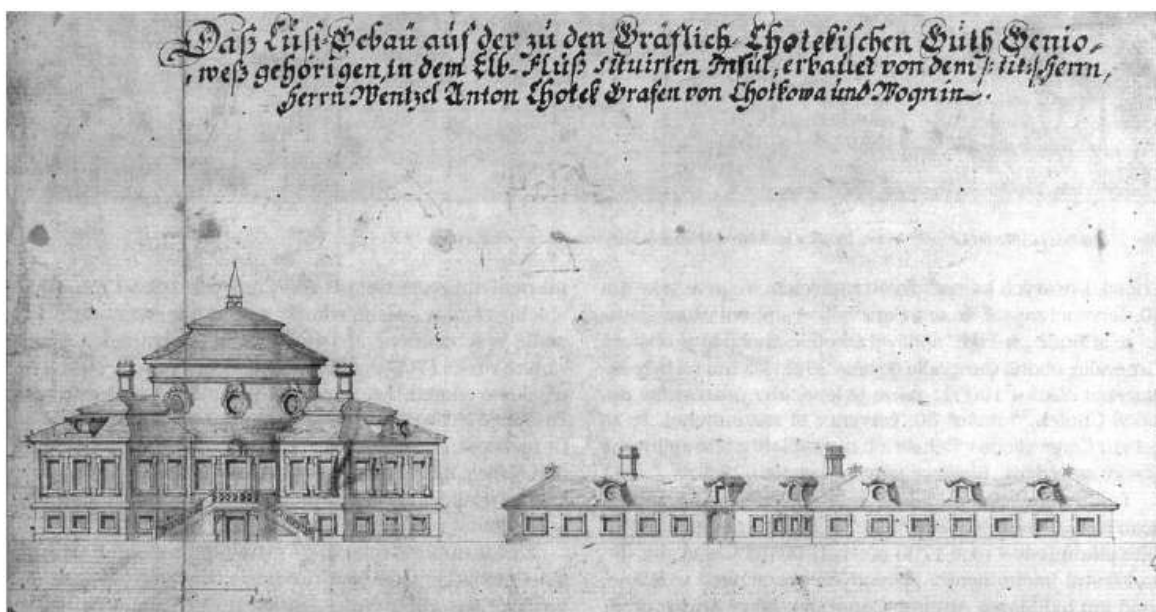 Daß Lust-Gebäu auf der zu den Gräflich-Chotekischen Guth Genio-
weß gehörigen, in dem Elb-Fluß situirten Insul, erbauet von dem /: tit: / Herrn,
Herrn Wentzl Anton Chotek Grafen von Chotkowa und Wognin.